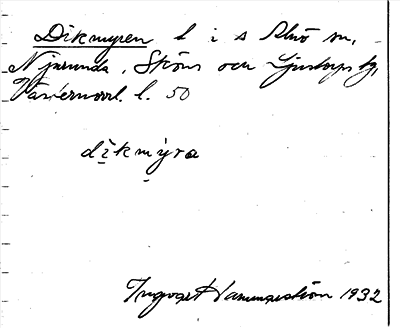 Dikmyren l i s Alnö sn,
Njurunda, Sköns och Ljustorps tg,
Västernorrl. l. 50
dikmyra
Ingvar Hammarström 1932